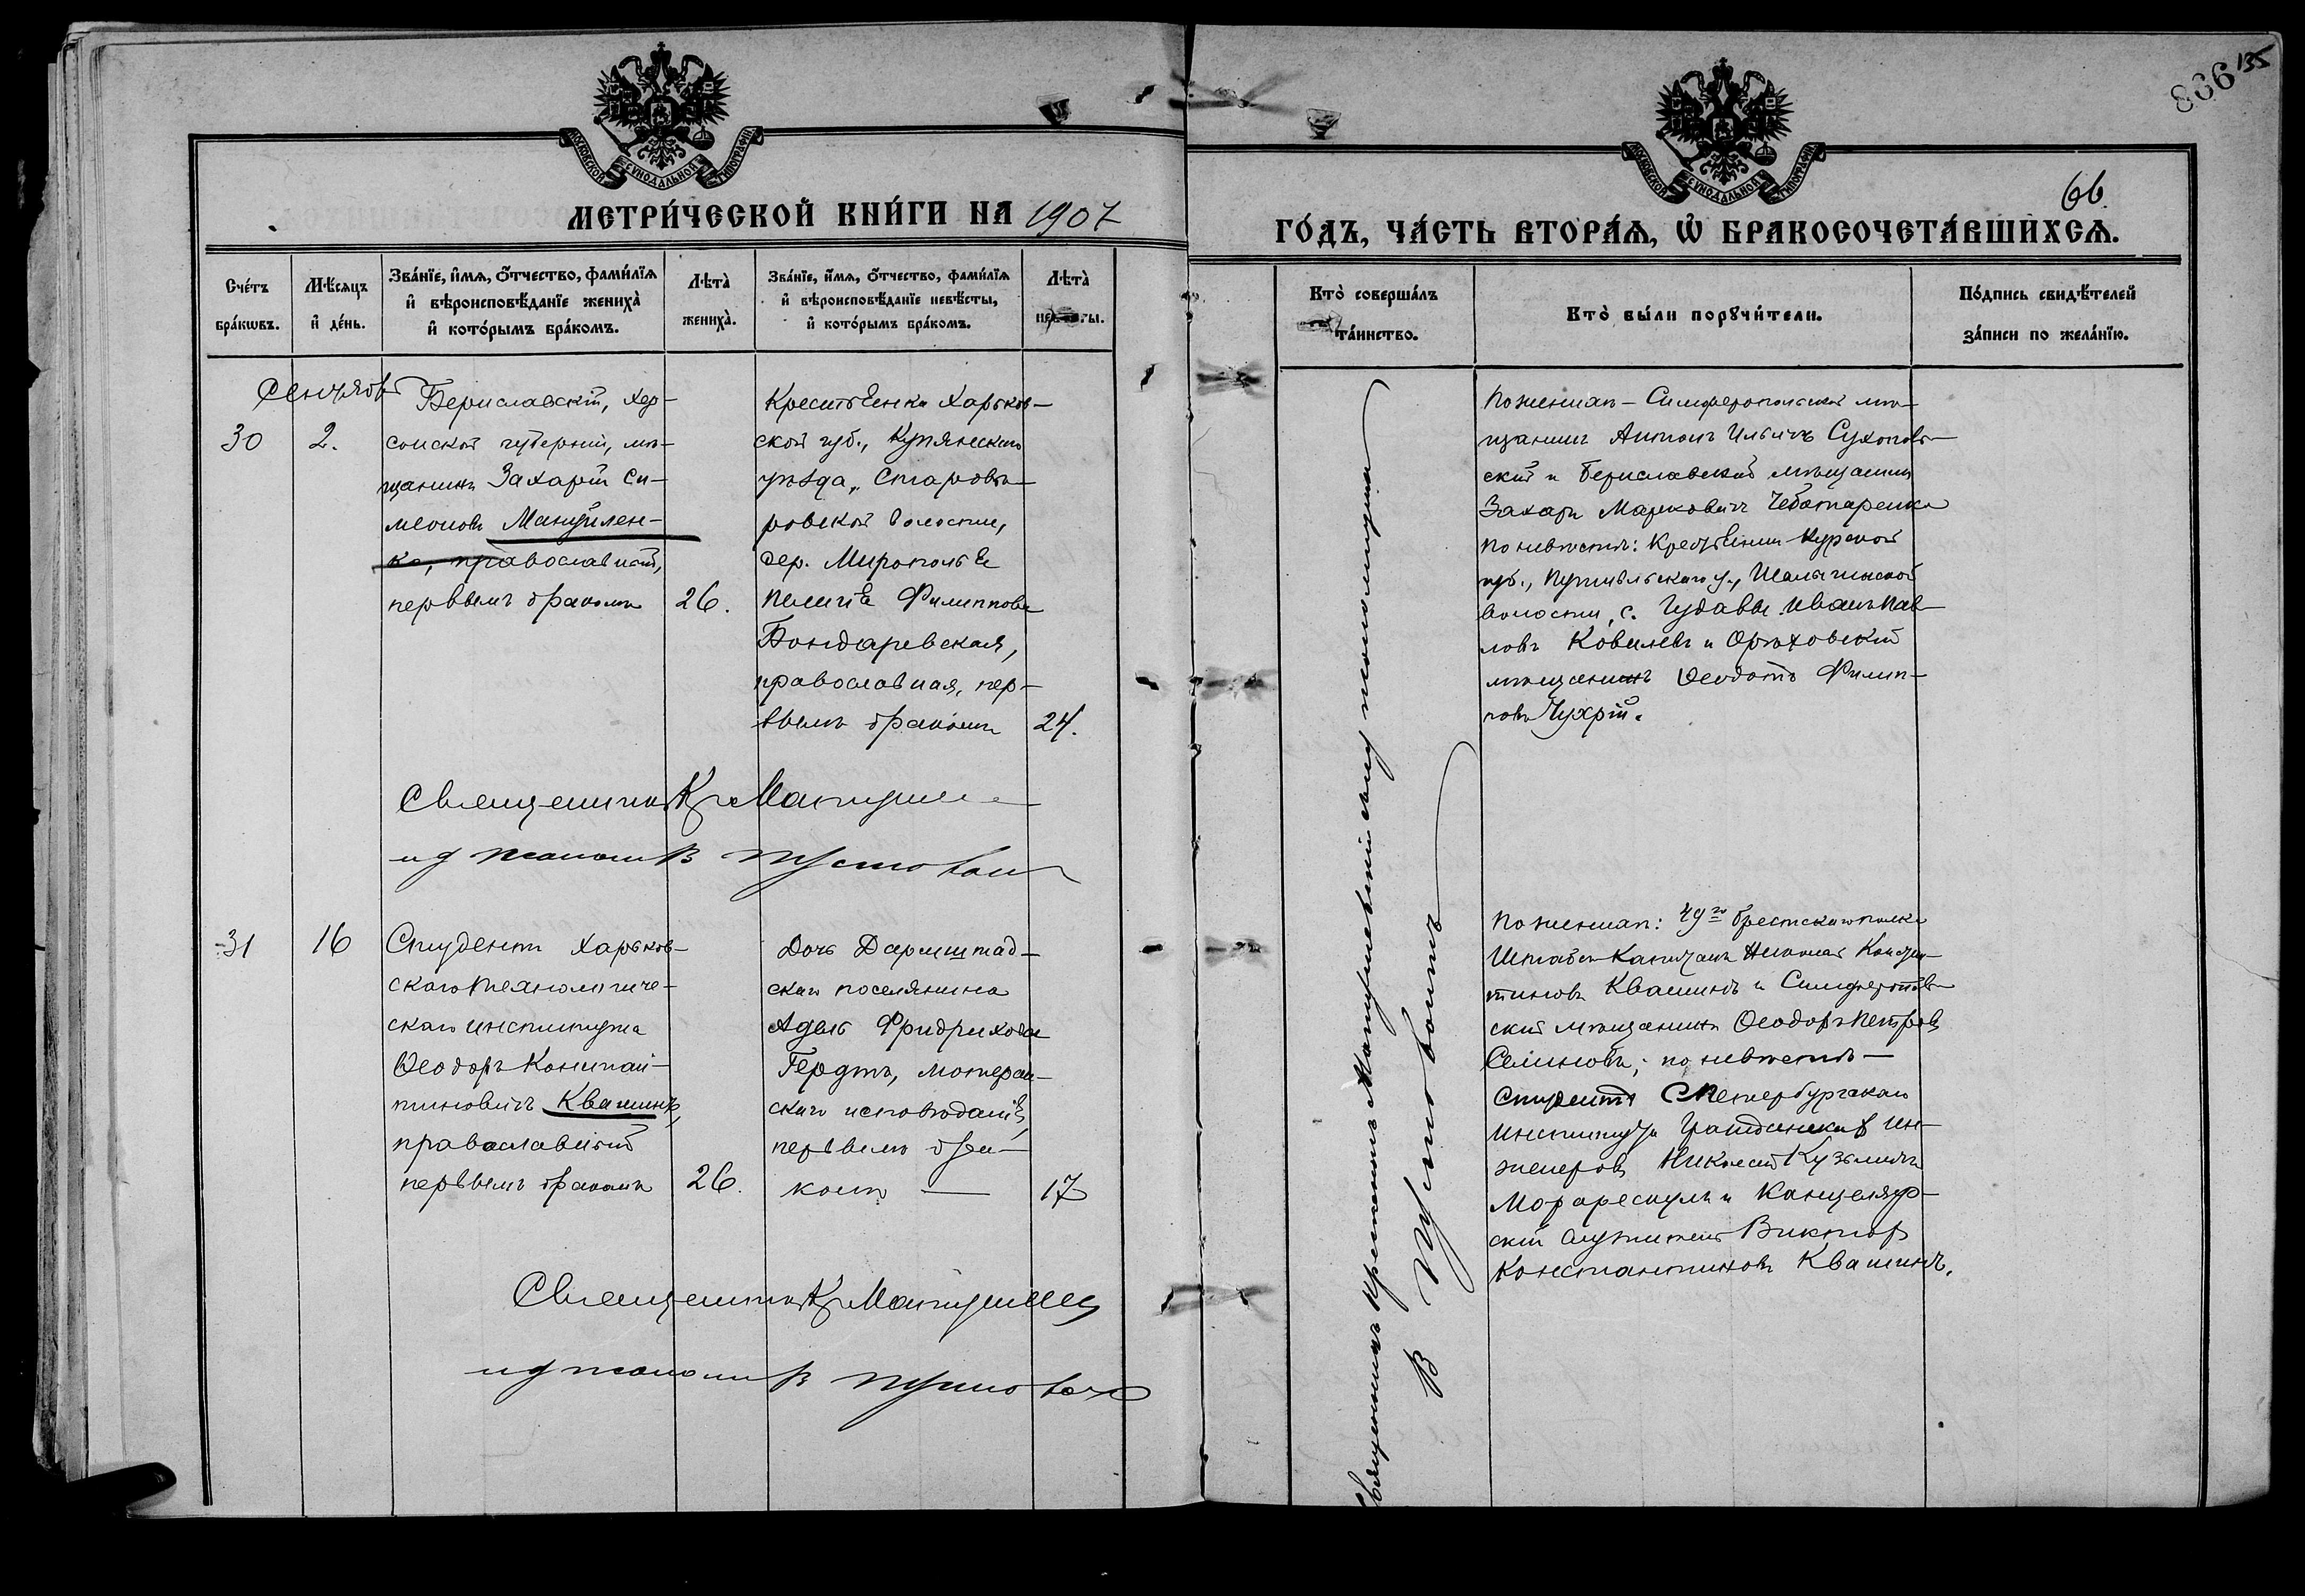 135
866
МОСКОВСКОЙ СѴНОДАЛЬНОЙ ТИПОГРАФІИ
МОСКОВСКОЙ СѴНОДАЛЬНОЙ ТИПОГРАФІИ
66.
МЕТРИ́ЧЕСКОЙ КНИ́ГИ НА 1907
ГО́ДЪ, ЧА́СТЬ ВТОРА́Я, Ѡ БРАКОСОЧЕТА́ВШИХСЯ.
Сче́тъ
бра́кωвъ.
Мѣ́сяцъ
и де́нь.
Зва́нїе, и́мя, о́тчество, фами́лїя
и вѣроисповѣ́данїе жениха̀
и кото́рымъ бра́комъ.
Лѣта̀
жениха̀.
Зва́нїе, и́мя, о́тчество, фами́лїя
и вѣроисповѣ́данїе невѣ́сты,
и кото́рымъ бра́комъ.
Лѣта̀
невѣсты.
Кто̀ соверша́лъ
та́инство.
Кто̀ бы́ли порꙋчи́тели.
По́дпись свидѣ́телей
за́писи по жела́нїю.
Сентябрь
30
2.
Бериславскій, Хер-
сонской губерніи, мѣ-
щанинъ Захарій Си-
меоновъ Мануйлен-
ко, православный,
первымъ бракомъ
26.
Крестьянка Харьков-
ской губ., Купянскаго
уѣзда, Старовѣ-
ровской волости,
дер. Мирополье
Пелагія Филиппова
Бондаревская,
православная, пер-
вымъ бракомъ
24.
По женихѣ - Симферопольскій мѣ-
щанинъ Антонъ Ильичъ
скій и Бериславскій мѣщанинъ
Захарій Марковичъ Чеботаренко
по невѣстѣ: крестьянинъ Курской
губ., Путивльскаго у., Шалыгинской
волости, с. Иванъ Пав-
ловъ Ковилевъ и Орѣховскій
мѣщанинъ Ѳеодотъ Филип-
повъ Чухрій.
Священникъ К. Матушев
ид псаломщ В Пустовой
31
16
Студентъ Харьков-
скаго Технологиче-
скаго института
Ѳеодоръ Констан-
тиновичъ Квашинъ,
православный
первымъ бракомъ
26.
Дочь Дармштад-
скаго поселянина
Адель Фридрихова
Гердтъ, лютеран-
скаго исповѣданія,
первымъ бра-
комъ —
17
По женихѣ: 49го Брестскаго полка
Штабсъ-Капитанъ Николай Констан-
тиновъ Квашинъ и Симферополь-
скій мѣщанинъ Ѳеодоръ Петровъ
Селиновъ; по невѣстѣ -
студентъ СПетербургскаго
института Гражданскихъ Ин-
женеровъ Николай Кузьмичъ
и Канцеляр-
скій служитель Викторъ
Константиновъ Квашинъ.
Священникъ К. Матушев
ид псаломщ В Пустовой
Священникъ